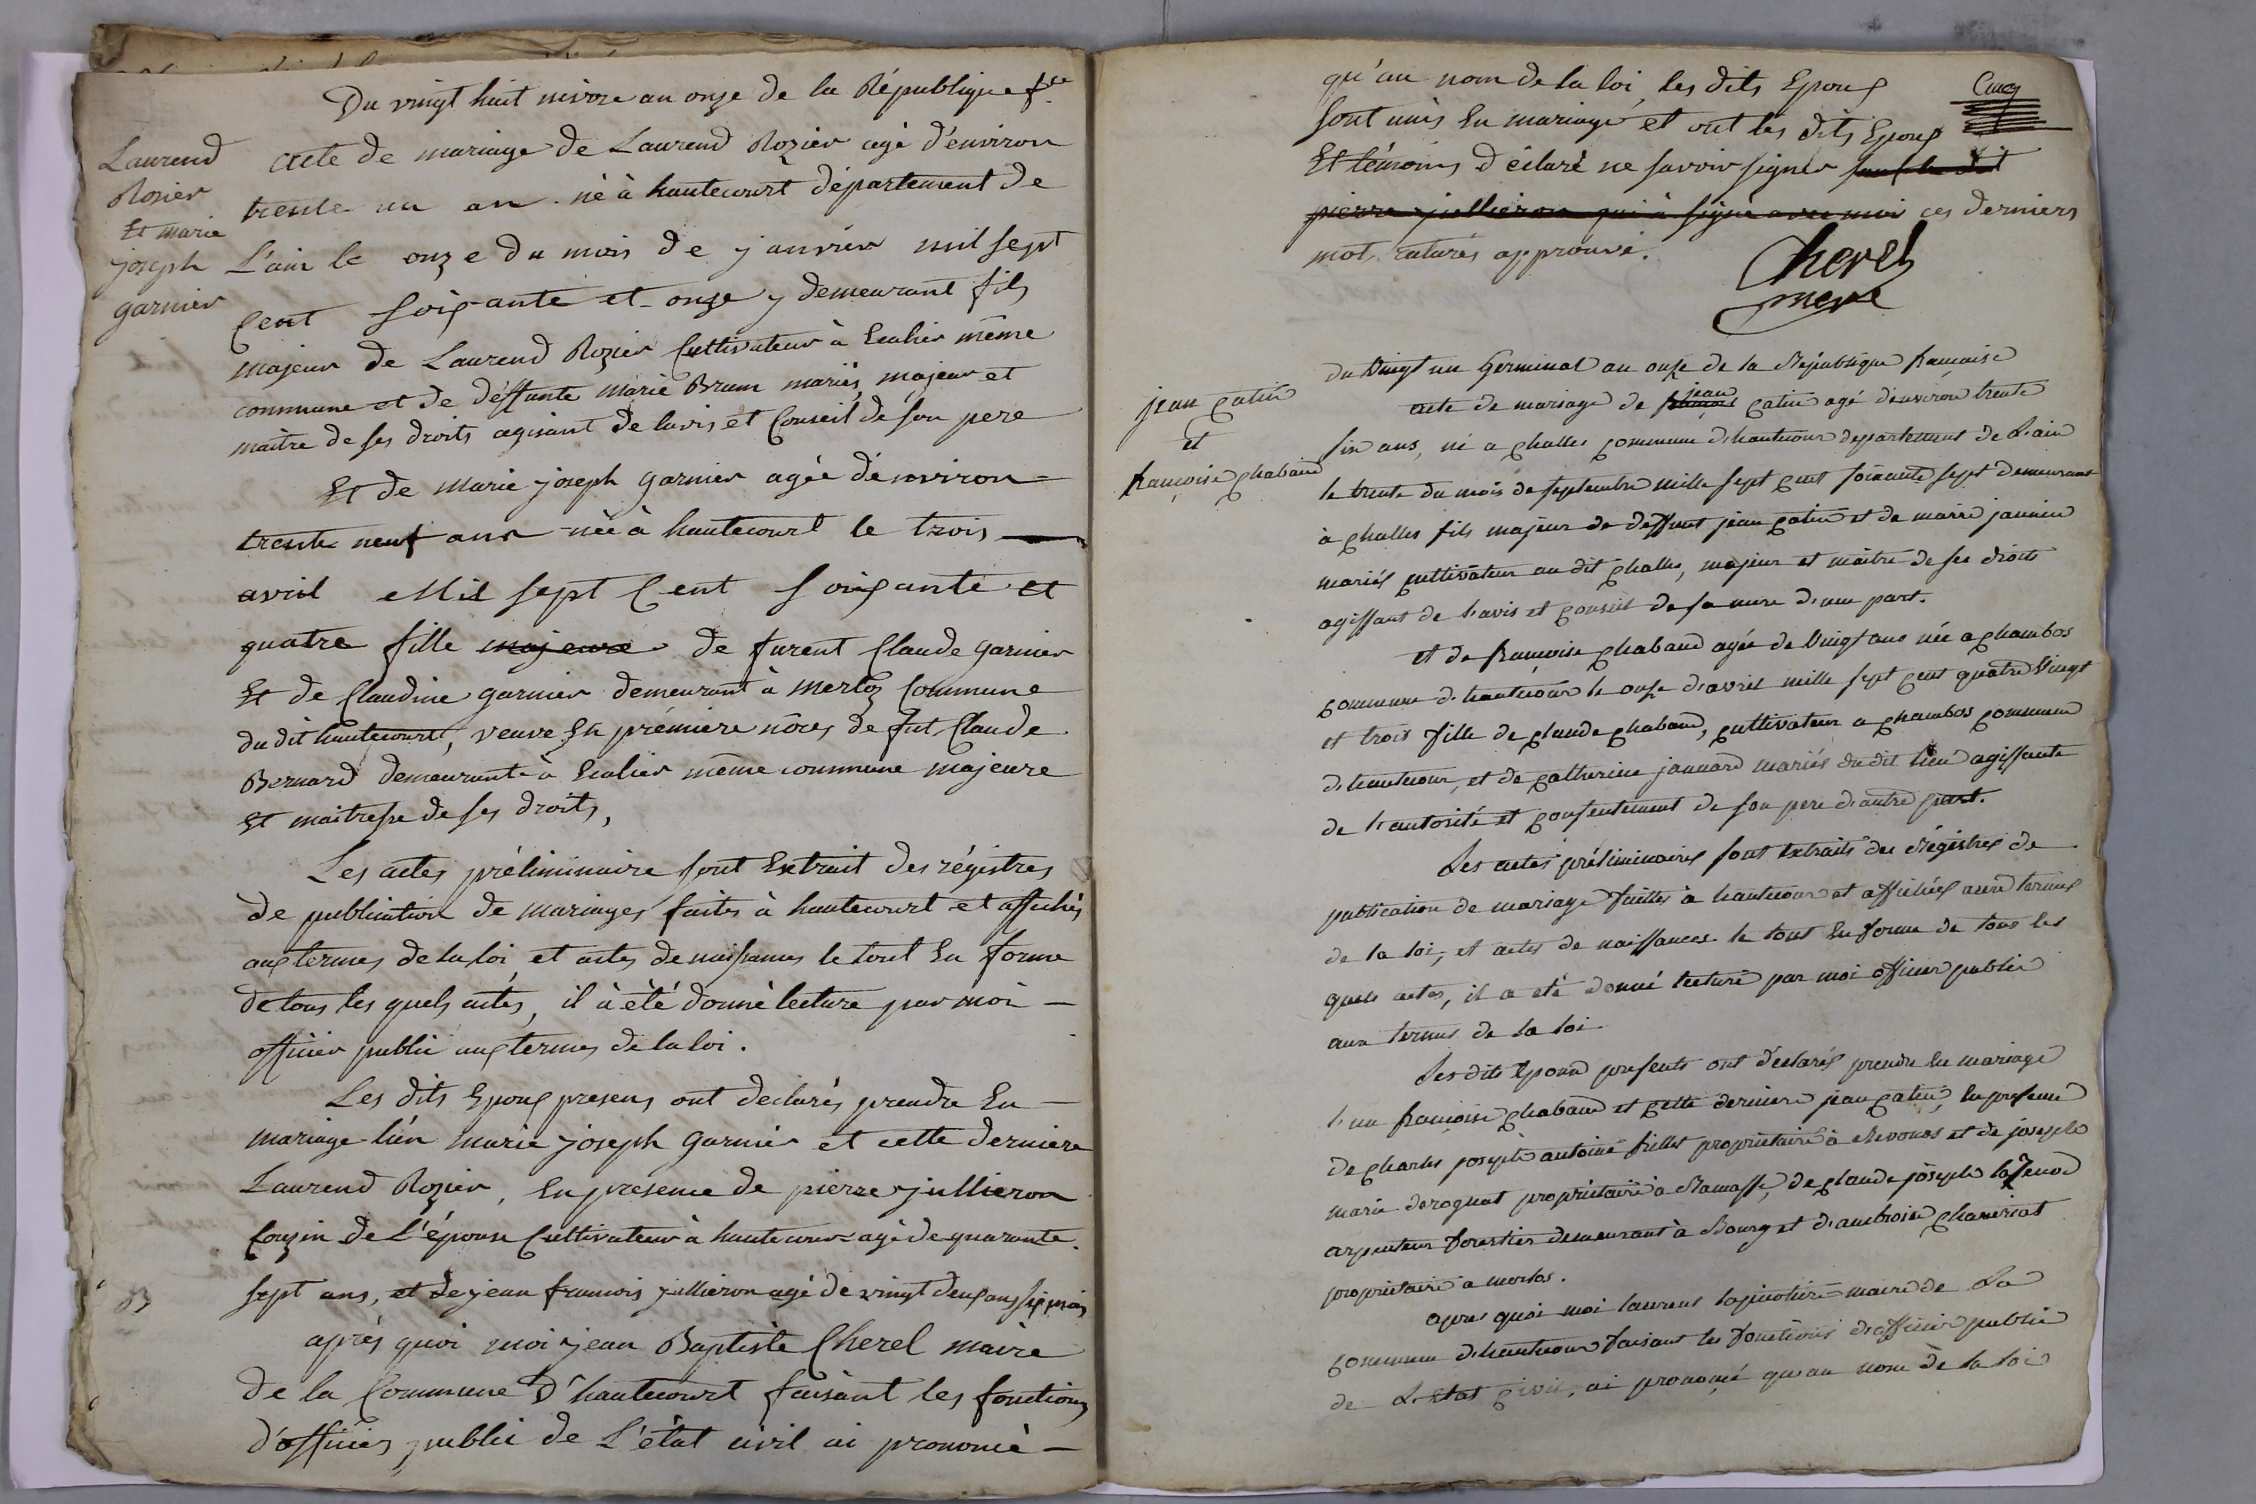 Du vingt huit nivose an onze de la République fse
Laurend
Rozier
Et marie
joseph
garnier
acte de mariage de Laurend Rozier agé d'environ
trente un an né à hautecourt département de
L'ain le onze du mois de janvier mil sept
Cent soixante et onze y demeurant fils
majeur de Laurend Rozier Cultivateur à Escalier même
commune et de déffunte marie Brun mariés, majeur et
maitre de ses droits agisant de lavis et Conseil de son pere
Et de marie joseph garnier agée d'environ
trente neuf ans née à hautecourt le trois
avril Mil sept Cent soixante et
quatre fille majeure de furent Claude garnier
Et de Claudine garnier demeurant à merloz Commune
du dit hautecourt, veuve En prémiere nôces de fut Claude
Bernard demeurante à Escalier même commune majeure
Et maitresse de ses droits,
Les actes préliminaire sont Extrait des régistres
de publication de mariages faites à hautecourt et affichés
aux termes de la loi, et actes de naissances le tout En forme
de tous les quels actes, il à été donné lecture par moi
officier public aux termes de la loi.
Les dits Epoux presens ont declarés prendre En
mariage l'un marie joseph garnier et cette derniere
Laurend Rozier, En presence de pierre jullieron
Couzin de L'épouse Cultivateur à hautecour agé de quarante
sept ans, et de jean francois jullieron agé de vingt deux ans six mois
après quoi moi jean Baptiste Cherel maire
de la Commune d'hautecourt faisant les fonctions
d'officier public de L'état civil ai prononcé
qu'au nom de la loi, les dits Epoux
sont unis En mariage et ont les dits Epoux
Et témoins déclaré ne savoir signer sauf le dit
pierre jullieron qui à signé avec moi ces derniers
mots raturés approuvé.
Cherel
mere
du Vingt un Germinal an onze de la République francaise
jean catin
et
francoise chabaud
acte de mariage de jean catin agé d'environ trente
six ans, né a challes commune d'hautecour departement de L'ain
le trente du mois de septembre mille sept cent soixante sept demeurant
à challes fils majeur de deffunt jean catin et de marie jannin
mariés cultivateur au dit challes, majeur et maitre de ses droits
agissant de l'avis et conseil de sa mere d'une part.
et de francoise chabaud agée de Vingt ans née a chambos
commune d'hautecour le onze d'avril mille sept cent quatre Vingt
et trois fille de claude chabaud, cultivateur a chambos commune
d'hautecour, et de catherine jannard mariés du dit lieu agissante
de l'autorité et consentement de son pere d'autre part.
Les actes préliminaires sont Extraits des Régistres de
publication de mariage faittes à hautecour et affichées aux termes
de la loi, et actes de naissances le tout En forme de tous les
quels actes, il a été donné lecture par moi officier public
aux termes de la loi.
Les dits Epoux presents ont déclarés prendre En mariage
l'un francoise chabaud et cette derniere jean catin, En presence
de charles joseph antoine fillet propriétaire à Revonas et de joseph
marie derognat propriétaire à Ramasse, de claude joseph
arpenteur forestier demeurant à Bourg et d'ambroise chanériat
propriétaire a merlos.
apres quoi moi laurent maire de La
commune d'hautecour faisant les fonctions d'officier public
de L'Etat civil, ai prononcé qu'au nom de la loi